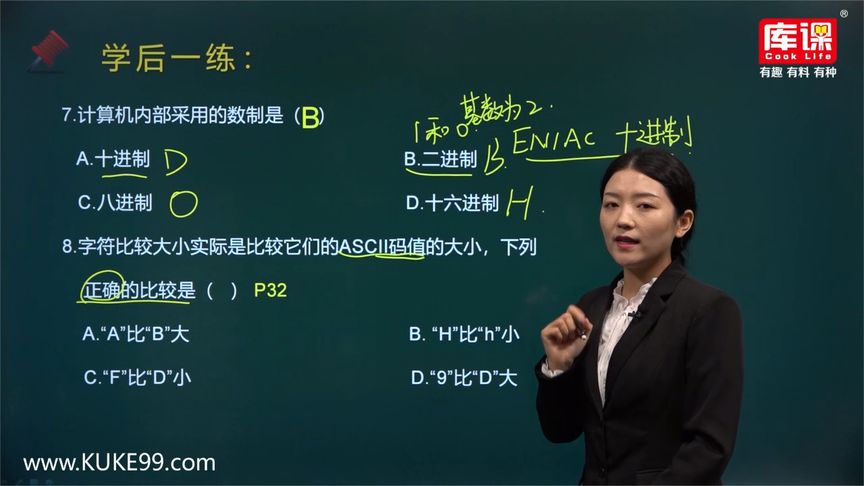 学后一练：
库课
®
Cook Life
有趣 有料 有种
7.计算机内部采用的数制是（B）
基数为2.
1和0.
ENIAC 十进制
A.十进制 D
B.二进制 B.
C.八进制 O
D.十六进制 H.
8.字符比较大小实际是比较它们的ASCII码值的大小，下列
正确的比较是（ ） P32
A.“A”比“B”大
B. “H”比“h”小
C.“F”比“D”小
D.“9”比“D”大
www.KUKE99.com